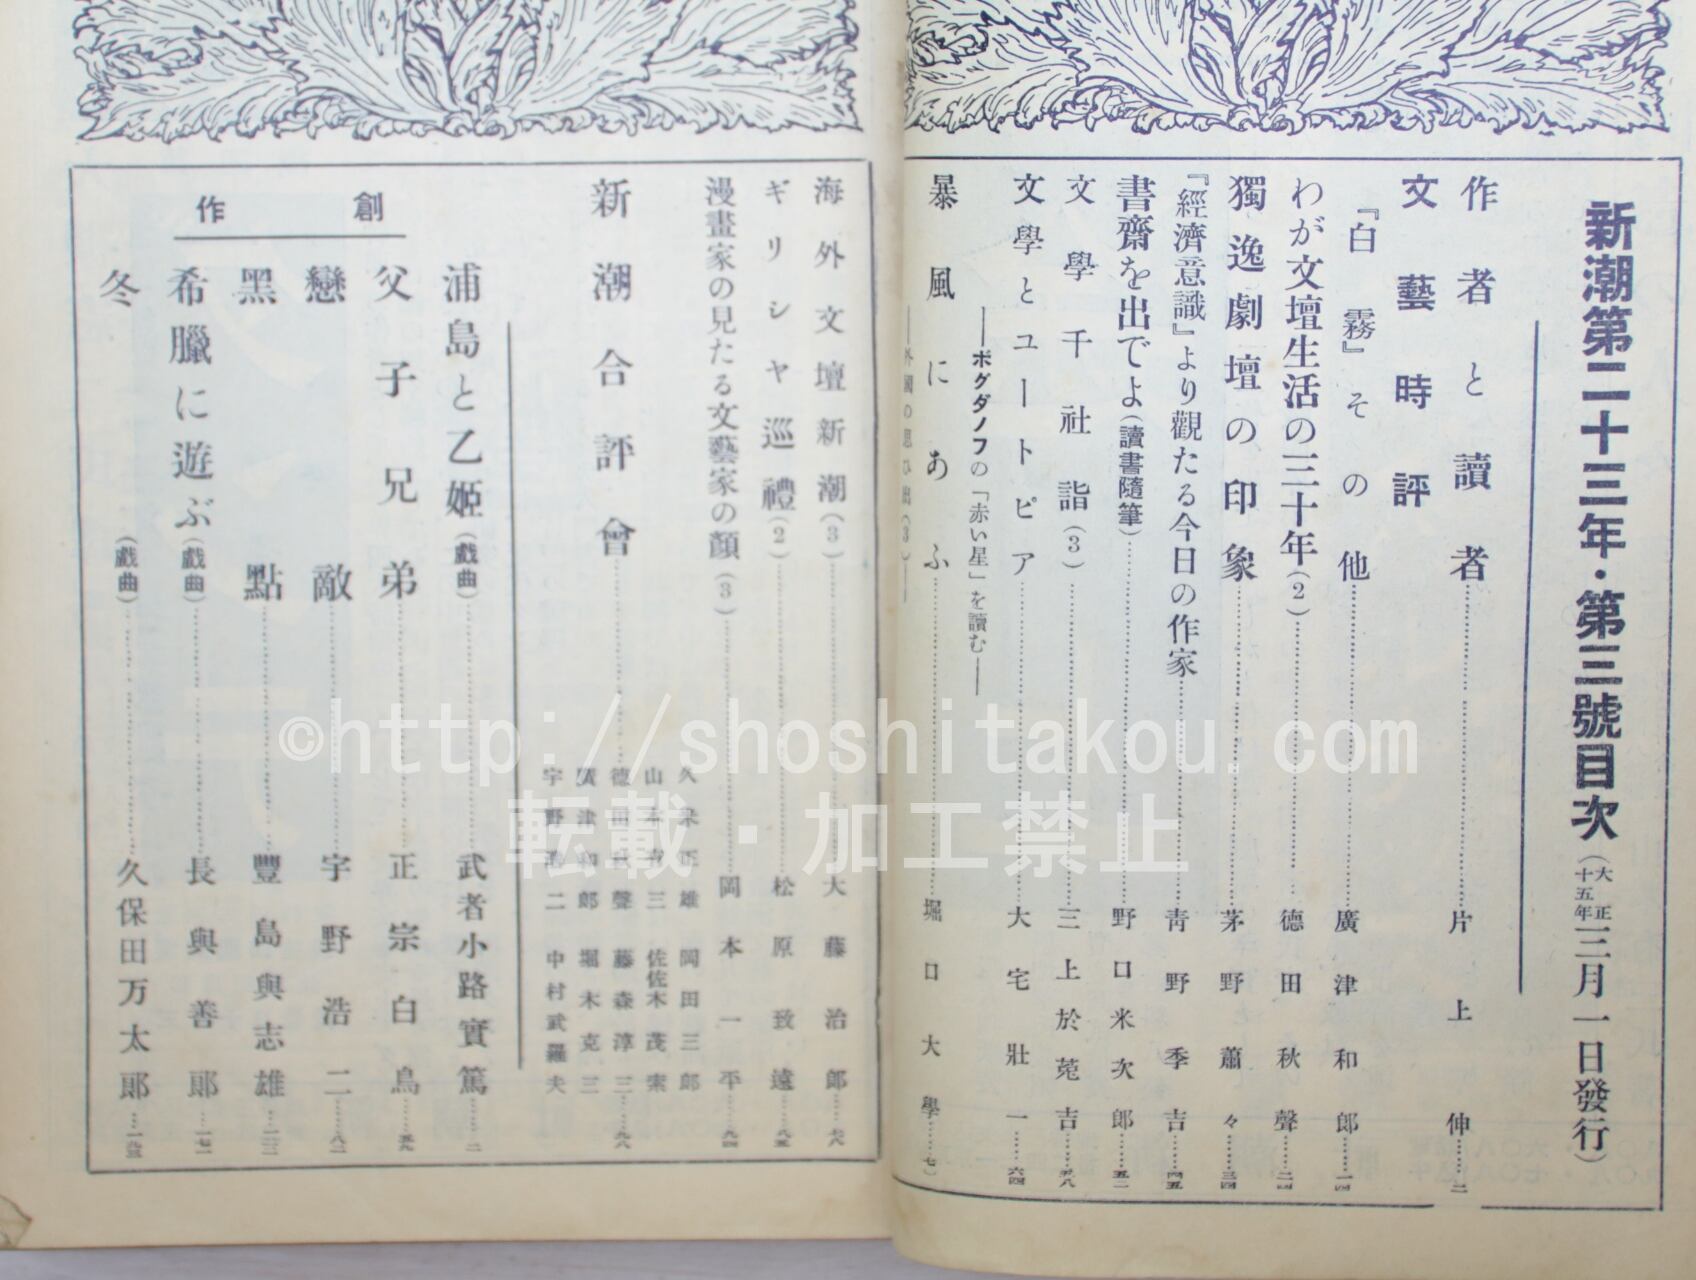 新潮第二十三年・第三號目次（大正十五年三月一日發行）
作者と讀者……片上伸……二
文藝時評
『白霧』その他……廣津和郎……一四
わが文壇生活の三十年（2）……德田秋聲……二四
獨逸劇壇の印象……茅野蕭々……三四
『經濟意識』より觀たる今日の作家……靑野季吉……四五
書齋を出でよ（讀書隨筆）……野口米次郎……五二
文學千社詣（3）……三上於菟吉……五八
文學とユートピア……大宅壯一……六四
——ボグダノフの「赤い星」を讀む——
暴風にあふ……堀口大學……七
——外國の思ひ出（3）——
海外文壇新潮（3）……大藤治郎……七八
ギリシヤ巡禮（2）……松原致遠……八五
漫畫家の見たる文藝家の顏（3）……岡本一平……九四
新潮合評會……九八
久米正雄 岡田三郎
山本有三 佐佐木茂索
德田秋聲 藤森淳三
廣津和郎 堀木克三
宇野浩二 中村武羅夫
創作
浦島と乙姬（戲曲）……武者小路實篤……二
父子兄弟……正宗白鳥……五九
戀敵……宇野浩二……八二
黑點……豐島與志雄……一三二
希臘に遊ぶ（戲曲）……長與善郞……一七一
冬（戲曲）……久保田万太郞……一九三
©http://shoshitakou.com
転載・加工禁止